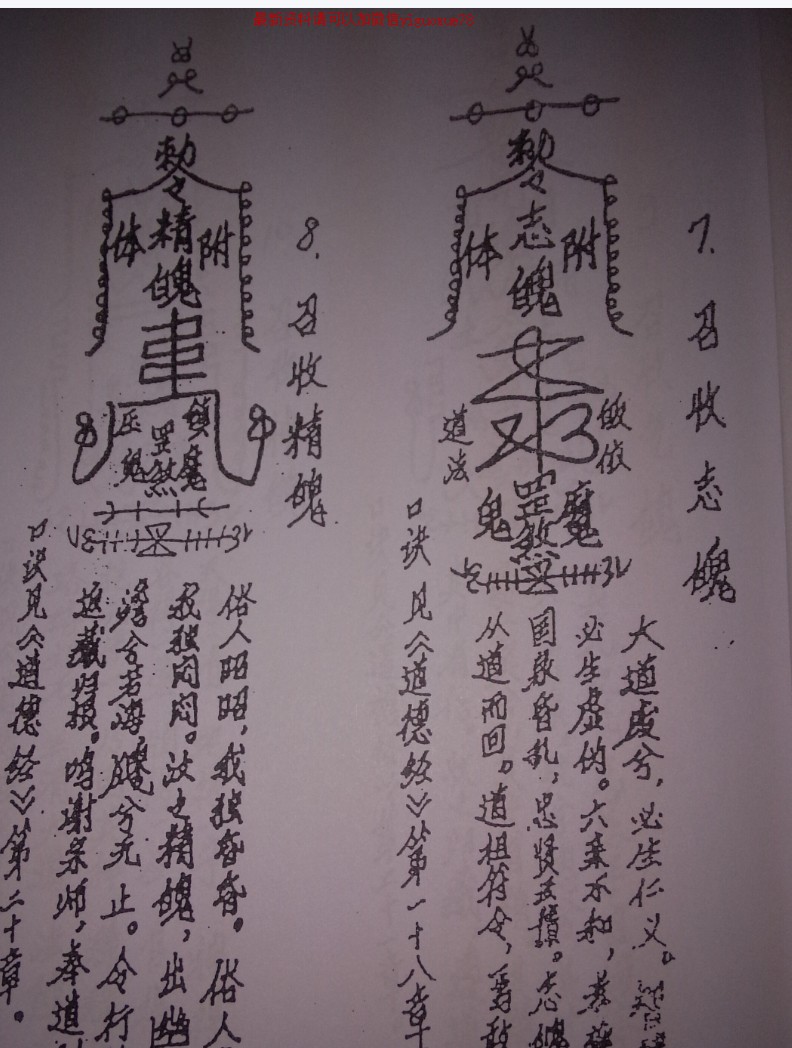 7. 召收志魄
敕令
志魄
附体
皈依
道法
魔
罡煞
鬼
大道废兮，必生仁义。智
必生虚伪。六亲不和，孝
国家昏乱，忠贤
志魄
从道而回。道祖符令，
口诀见《道德经》第一十八章
8. 召收精魄
敕令
精魄
附体
镇魔
罡煞
压鬼
俗人昭昭，我独昏昏。俗人
我独闷闷。汝之精魄，出幽
兮若海，飂兮无止。令行
返藏归根。鸣谢宗师，奉道
口诀见《道德经》第二十章。